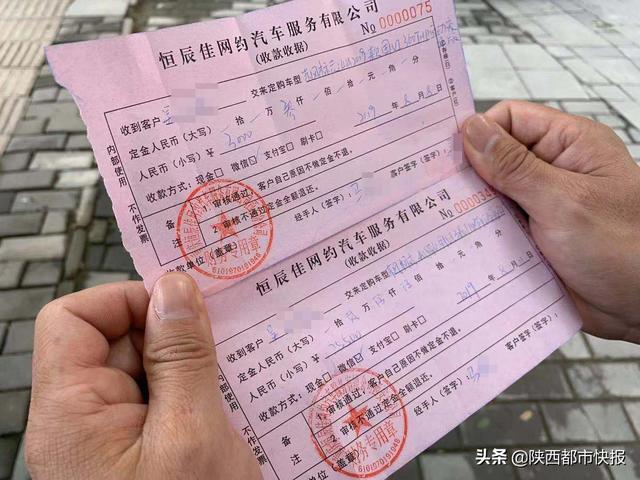 恒辰佳网约汽车服务有限公司
(收款收据)
No 0000075
收到客户 吴
交来定购车型
定金人民币(大写) 拾 万 叁 仟 佰 拾 元 角 分
人民币(小写)¥ 3000
2019 年 8 月 8 日
收款方式: 现金□ 微信☑ 支付宝□ 刷卡□
备注
1 审核通过,客户自己原因不做定金不退。
2 审核不通过定金全额退还。
收款单位(盖章)
经手人(签字): 马
客户签字(签字):
内部使用 不作发票
财务专用章
6101970191946
恒辰佳网约汽车服务有限公司
(收款收据)
No 000034
收到客户 吴
交来定购车型
定金人民币(大写) 拾 万 仟 佰 拾 元 角 分
人民币(小写)¥ 25500
2019 年 8 月 日
收款方式: 现金□ 微信☑ 支付宝□ 刷卡□
备注
1 审核通过,客户自己原因不做定金不退。
2 审核不通过定金全额退还。
收款单位(盖章)
经手人(签字): 马
客户签字(签字):
内部使用 不作发票
财务专用章
6101970191946
头条 @陕西都市快报